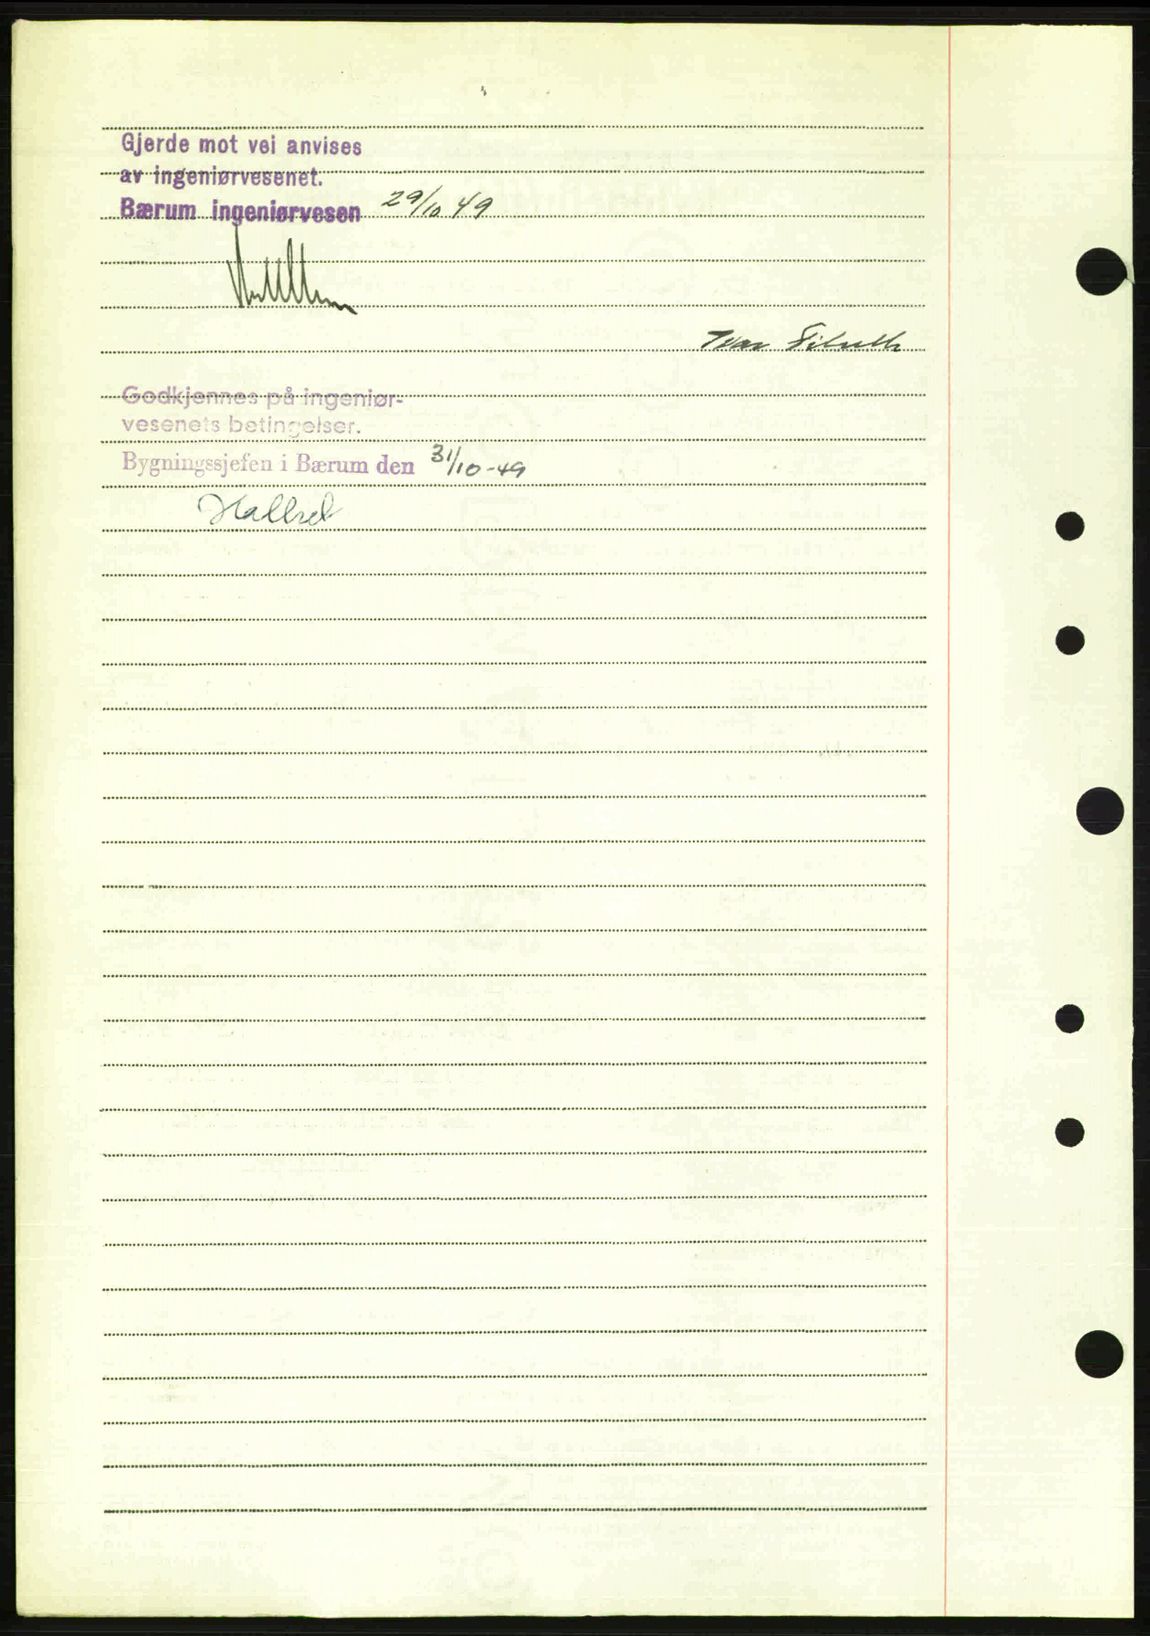 Gjerde mot vei anvises
av ingeniørvesenet.
Bærum ingeniørvesen 29/10 49
Ivar
Godkjennes på ingeniør-
vesenets betingelser.
Bygningssjefen i Bærum den 31/10-49